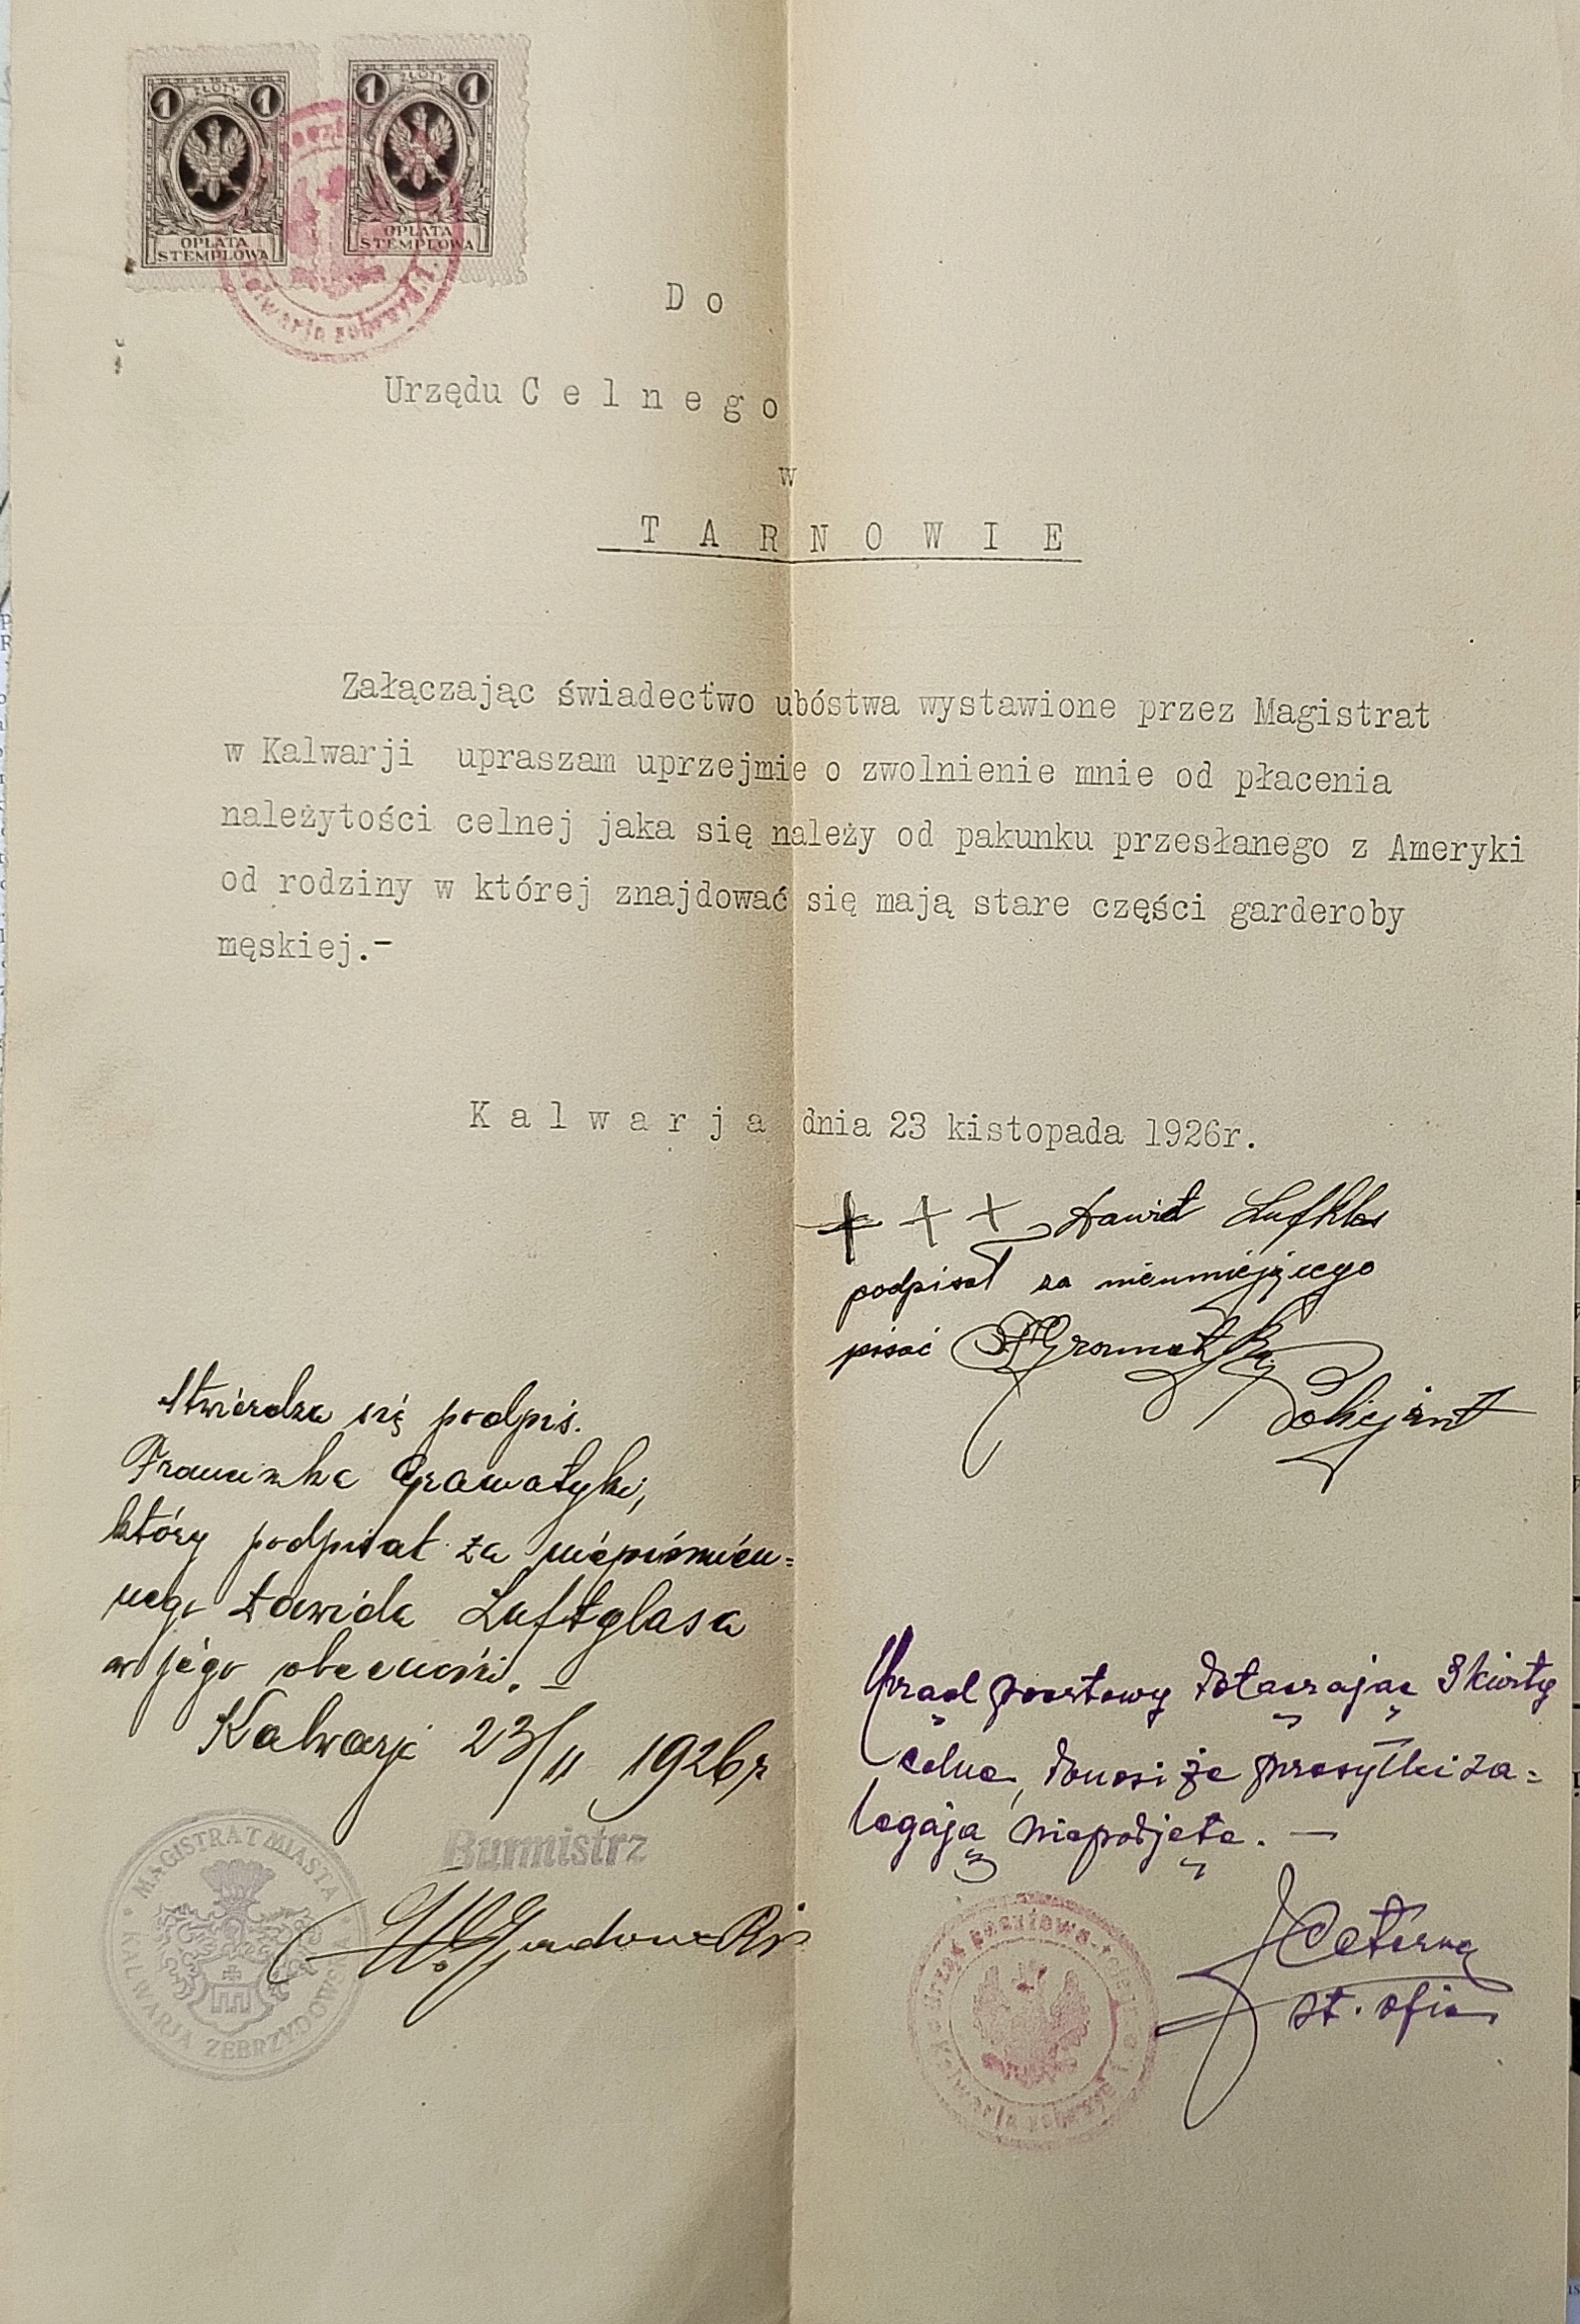 1 ZŁOTY 1
OPŁATA
STEMPLOWA
1 ZŁOTY 1
OPŁATA
STEMPLOWA
Do
Urzędu Celnego
w
TARNOWIE
Załączając świadectwo ubóstwa wystawione przez Magistrat
w Kalwarji upraszam uprzejmie o zwolnienie mnie od płacenia
należytości celnej jaka się należy od pakunku przesłanego z Ameryki
od rodziny w której znajdować się mają stare części garderoby
męskiej.-
Kalwarja dnia 23 kistopada 1926r.
+ + + Dawid
podpisał za nieumiejącego
pisać
Policjant
Stwierdza się podpis.
Franciszka Gramatyki,
który podpisał za niepiśmien=
nego Dawida Luftglasa
w jego obecności. —
Kalwarja 23/11 1926 r
Burmistrz
MAGISTRAT MIASTA
KALWARJA ZEBRZYDOWSKA
Urząd pocztowy dołączając 3 karty
celne, donosi że przesyłki za=
legają niepodjęte. —
st. ofic